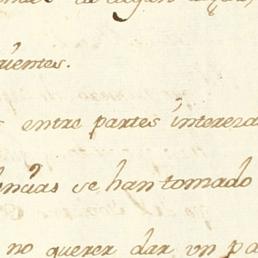 uientes.
entre partes intereza
encias se han tomado
no querer dar un pa